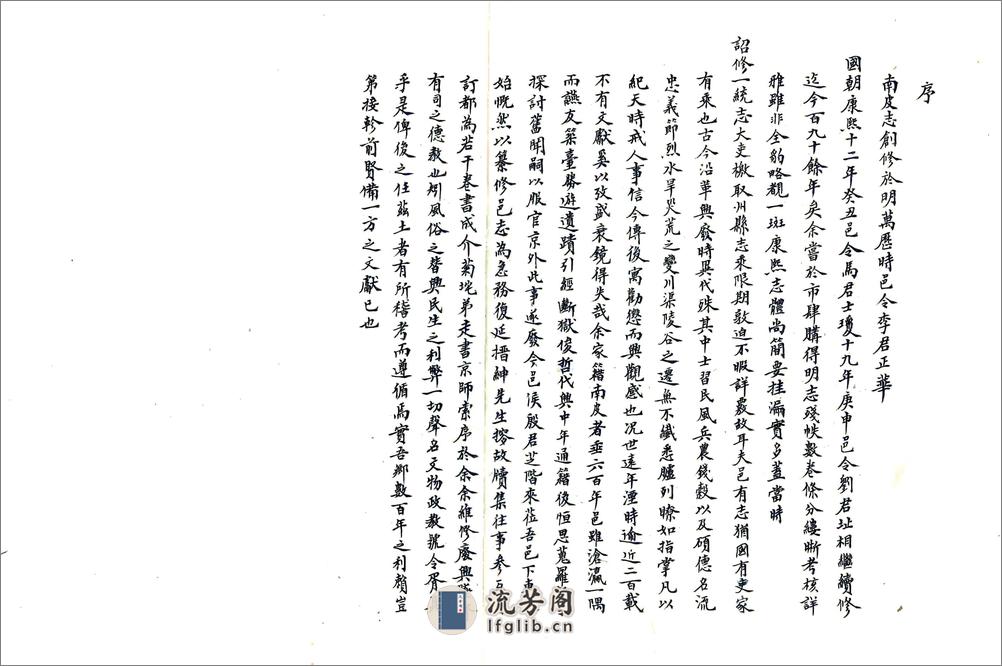 序
南皮志創修於明萬歷時邑令李君正華
國朝康熙十二年癸丑邑令馬君士瓊十九年庚申邑令劉君址相繼續修
迄今百九十餘年矣余嘗於市肆購得明志殘帙數卷條分縷晰考核詳
雅雖非全豹略覩一斑康熙志體尚簡要挂漏實多蓋當時
詔修一統志大吏檄取州縣志乘限期敦迫不暇詳覈故耳夫邑有志猶國有史家
有乘也古今沿革興廢時異代殊其中士習民風兵農錢穀以及碩德名流
忠義節烈水旱災荒之變川渠陵谷之遷無不纖悉臚列瞭如指掌凡以
紀天時戒人事信今傳後寓勸懲而興觀感也况世遠年湮時逾近二百載
不有文獻奚以攷盛衰鏡得失哉余家籍南皮者垂六百年邑雖滄瀛一隅
而讌友築臺勝遊遺蹟引經斷獄俊哲代興中年通籍後恒思蒐羅
探討舊聞嗣以服官京外此事遂廢今邑侯殷君芝階來蒞吾邑下車
始慨然以纂修邑志為急務復延搢紳先生搜故牘集往事參互
訂都為若干卷書成介菊垞弟走書京師索序於余余維修廢興
有司之德教也矧風俗之替興民生之利弊一切聲名文物政教號令胥
乎是俾後之任茲土者有所稽考而遵循焉實吾鄉數百年之利賴豈
第接軫前賢備一方之文獻已也
流芳阁
lfglib.cn